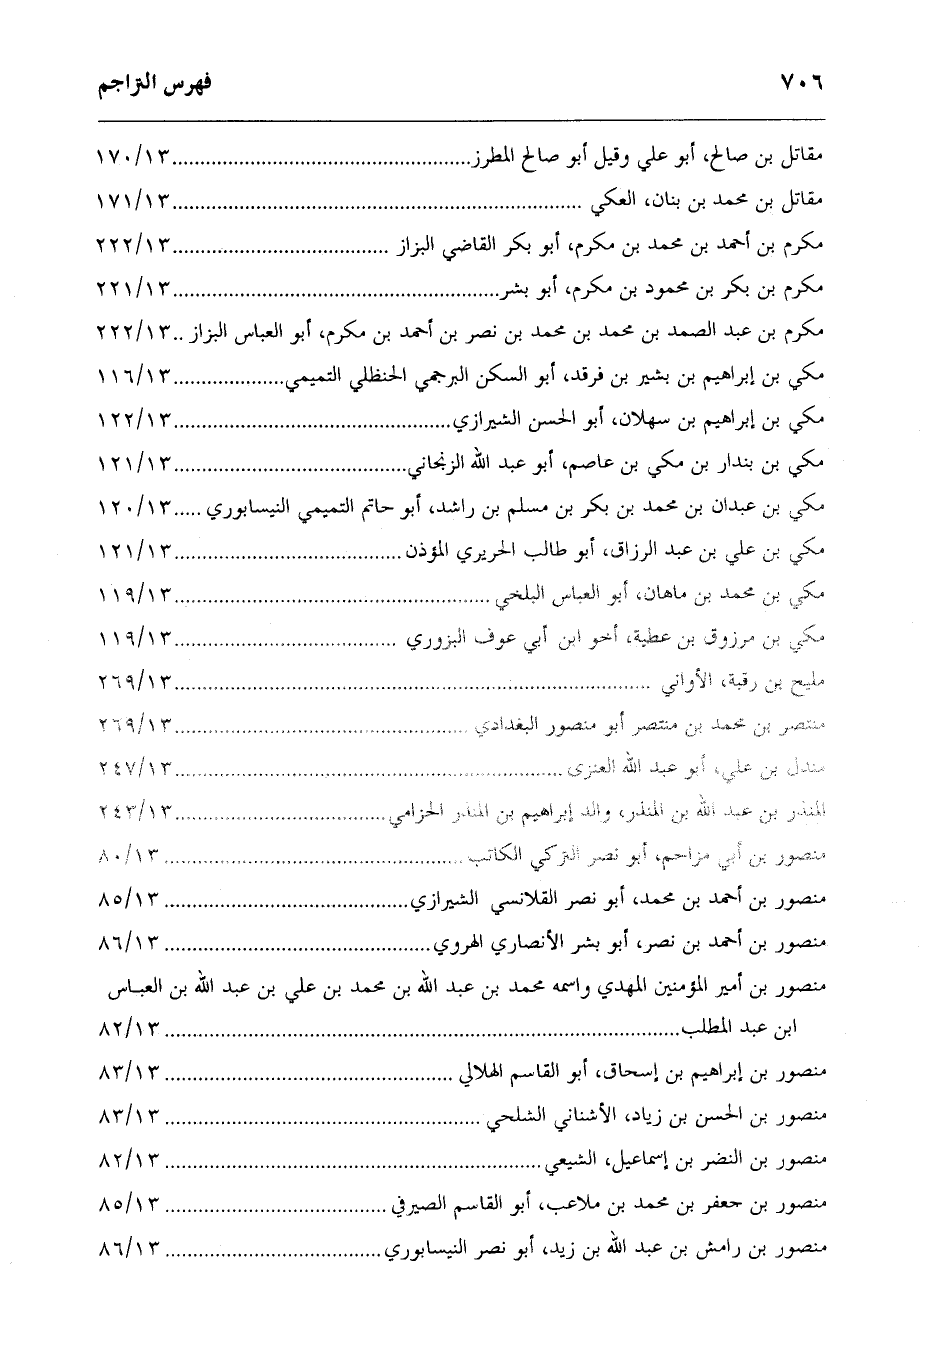 ٧٠٦ فهرس التراجم
مقاتل بن صالح، أبو علي وقيل أبو صالح المطرز..................................................... ١٧٠/١٣
مقاتل بن محمد بن بنان، العكي ......................................................................... ١٧١/١٣
مكرم بن أحمد بن محمد بن مكرم، أبو بكر القاضي البزاز ...................................... ٢٢٢/١٣
مكرم بن بكر بن محمود بن مكرم، أبو بشر......................................................... ٢٢١/١٣
مكرم بن عبد الصمد بن محمد بن محمد بن نصر بن أحمد بن مكرم، أبو العباس البزاز .. ٢٢٢/١٣
مكي بن إبراهيم بن بشير بن فرقد، أبو السكن البرجمي الحنظلي التميمي.................... ١١٦/١٣
مكي بن إبراهيم بن سهلان، أبو الحسن الشيرازي................................................. ١٢٢/١٣
مكي بن بندار بن مكي بن عاصم، أبو عبد الله الزنجاني.......................................... ١٢١/١٣
مكي بن عبدان بن محمد بن بكر بن مسلم بن راشد، أبو حاتم التميمي النيسابوري ..... ١٢٠/١٣
مكي بن علي بن عبد الرزاق، أبو طالب الحريري المؤذن ......................................... ١٢١/١٣
مكي بن محمد بن ماهان، أبو العباس البلخي ........................................................ ١١٩/١٣
مكي بن مرزوق بن عطية، أخو ابن أبي عوف البزوري ........................................ ١١٩/١٣
مليح بن رقبة، الأواني ..................................................................................... ٢٦٩/١٣
منتصر بن محمد بن منتصر أبو منصور البغدادي .................................................... ٢٦٩/١٣
مندل بن علي، أبو عبد الله العنزي ..................................................................... ٢٤٧/١٣
المنذر بن عبد الله بن المنذر، والد إبراهيم بن المنذر الحزامي...................................... ٢٤٣/١٣
منصور بن أبي مزاحم، أبو نصر التركي الكاتب ..................................................... ٨٠/١٣
منصور بن أحمد بن محمد، أبو نصر القلانسي الشيرازي............................................ ٨٥/١٣
منصور بن أحمد بن نصر، أبو بشر الأنصاري الهروي ................................................ ٨٦/١٣
منصور بن أمير المؤمنين المهدي واسمه محمد بن عبد الله بن محمد بن علي بن عبد الله بن العباس
ابن عبد المطلب............................................................................................. ٨٢/١٣
منصور بن إبراهيم بن إسحاق، أبو القاسم الهلالي .................................................... ٨٣/١٣
منصور بن الحسن بن زياد، الأشناني الشلحي ......................................................... ٨٣/١٣
منصور بن النضر بن إسماعيل، الشيعي .................................................................... ٨٢/١٣
منصور بن جعفر بن محمد بن ملاعب، أبو القاسم الصيرفي ........................................ ٨٥/١٣
منصور بن رامش بن عبد الله بن زيد، أبو نصر النيسابوري....................................... ٨٦/١٣